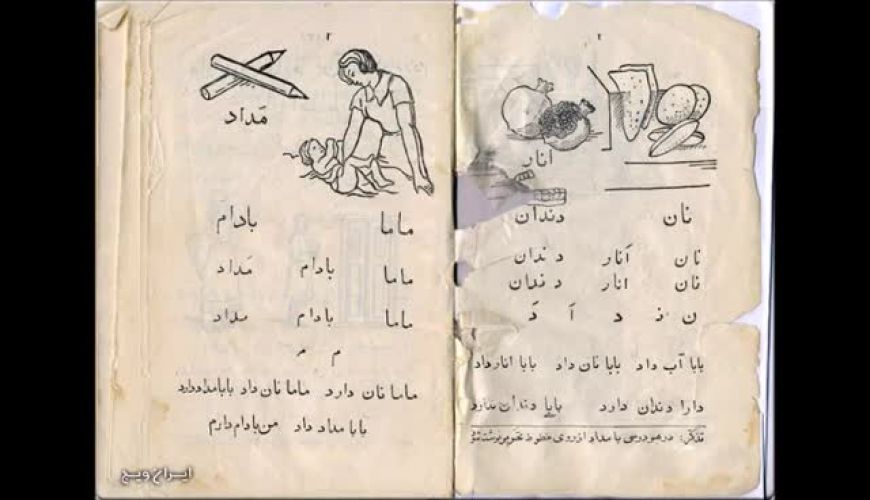 انار
نان دندان
نان اَنار دندان
نان انار دندان
ن نـ د اَ دَ
بابا آب داد بابا نان داد بابا انار داد
دارا دندان دارد بابا دندان ندارد
تذکّر: در هر درسی با مداد از روی خطوط
مَداد
ماما بادام
ماما بادام مَداد
ماما بادام مداد
م مـ
ماما نان دارد ماما نان داد بابا مداد دارد
بابا مداد داد من بادام دارم
ایران ویج